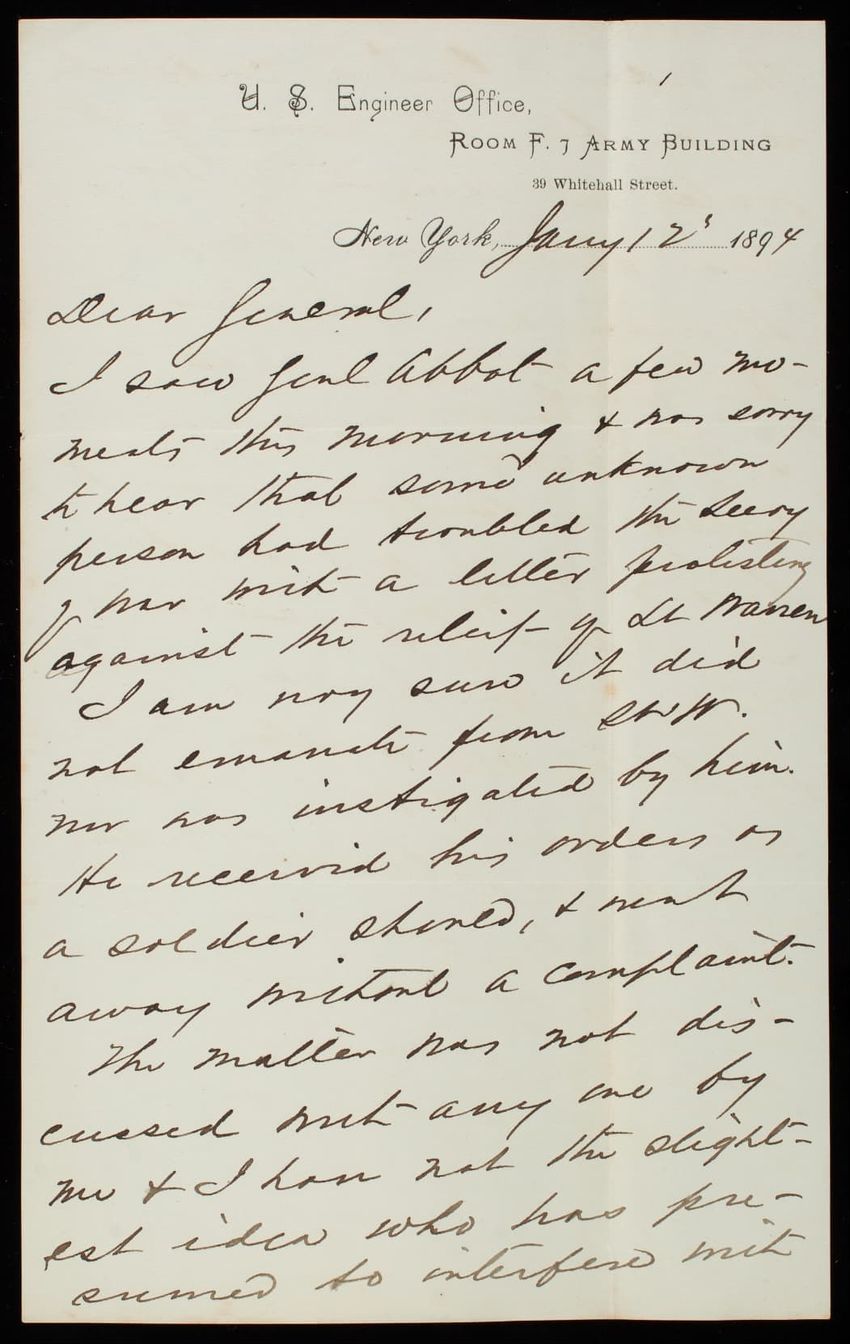 U. S. Engineer Office,
Room F. 7 Army Building
39 Whitehall Street.
New York, Jany 12s 1894
Dear General,
I saw Genl Abbot a few mo-
ments this morning & was sorry
to hear that some unknown
person had troubled the Secry
of War with a letter protesting
against the relief of Lt Warren
I am very sure it did
not emanate from Lt W.
nor was instigated by him.
He received his orders as
a soldier should, & went
away without a complaint.
The matter was not dis-
cussed with any one by
me & I have not the slight-
est idea who has pre-
sumed to interfere with